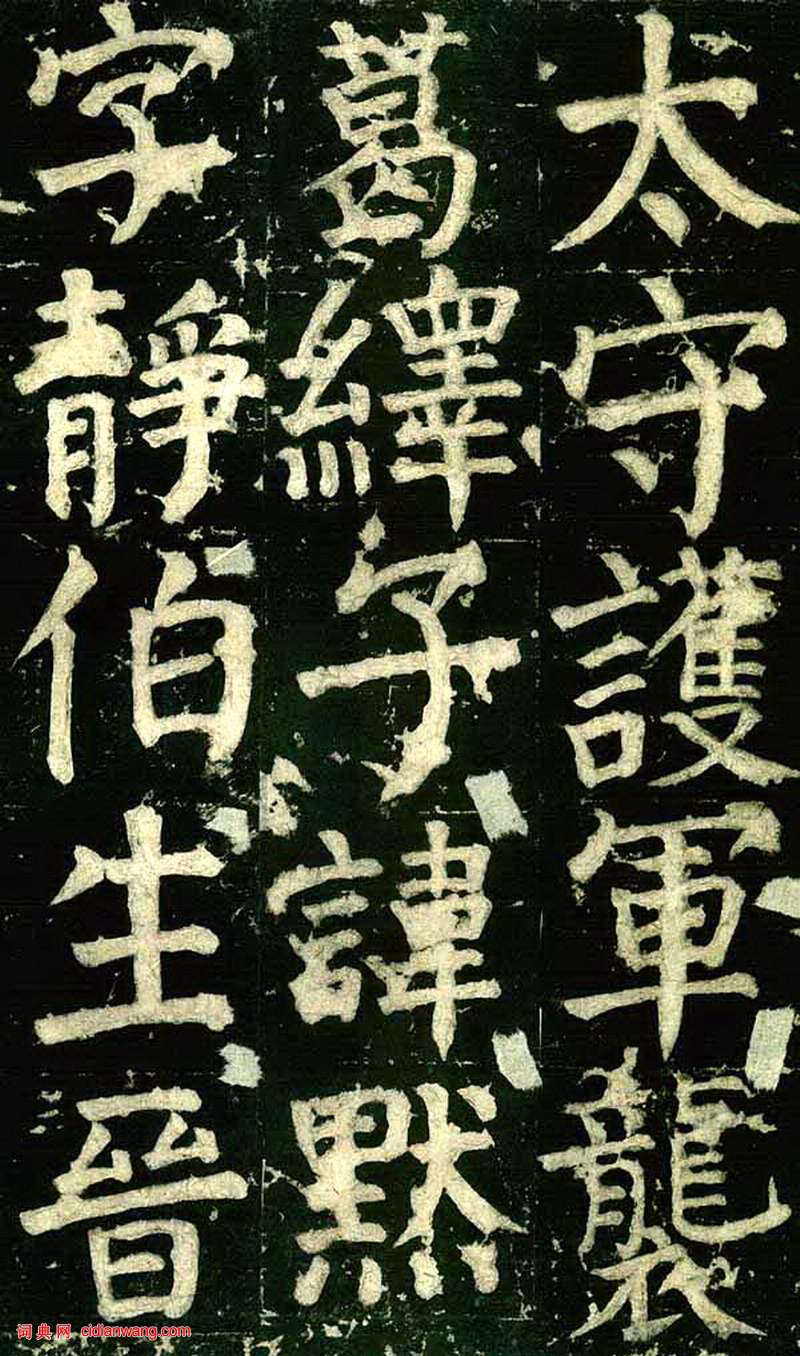 太守護軍襲
葛繹子諱默
字靜伯生晉
词典网 cidianwang.com